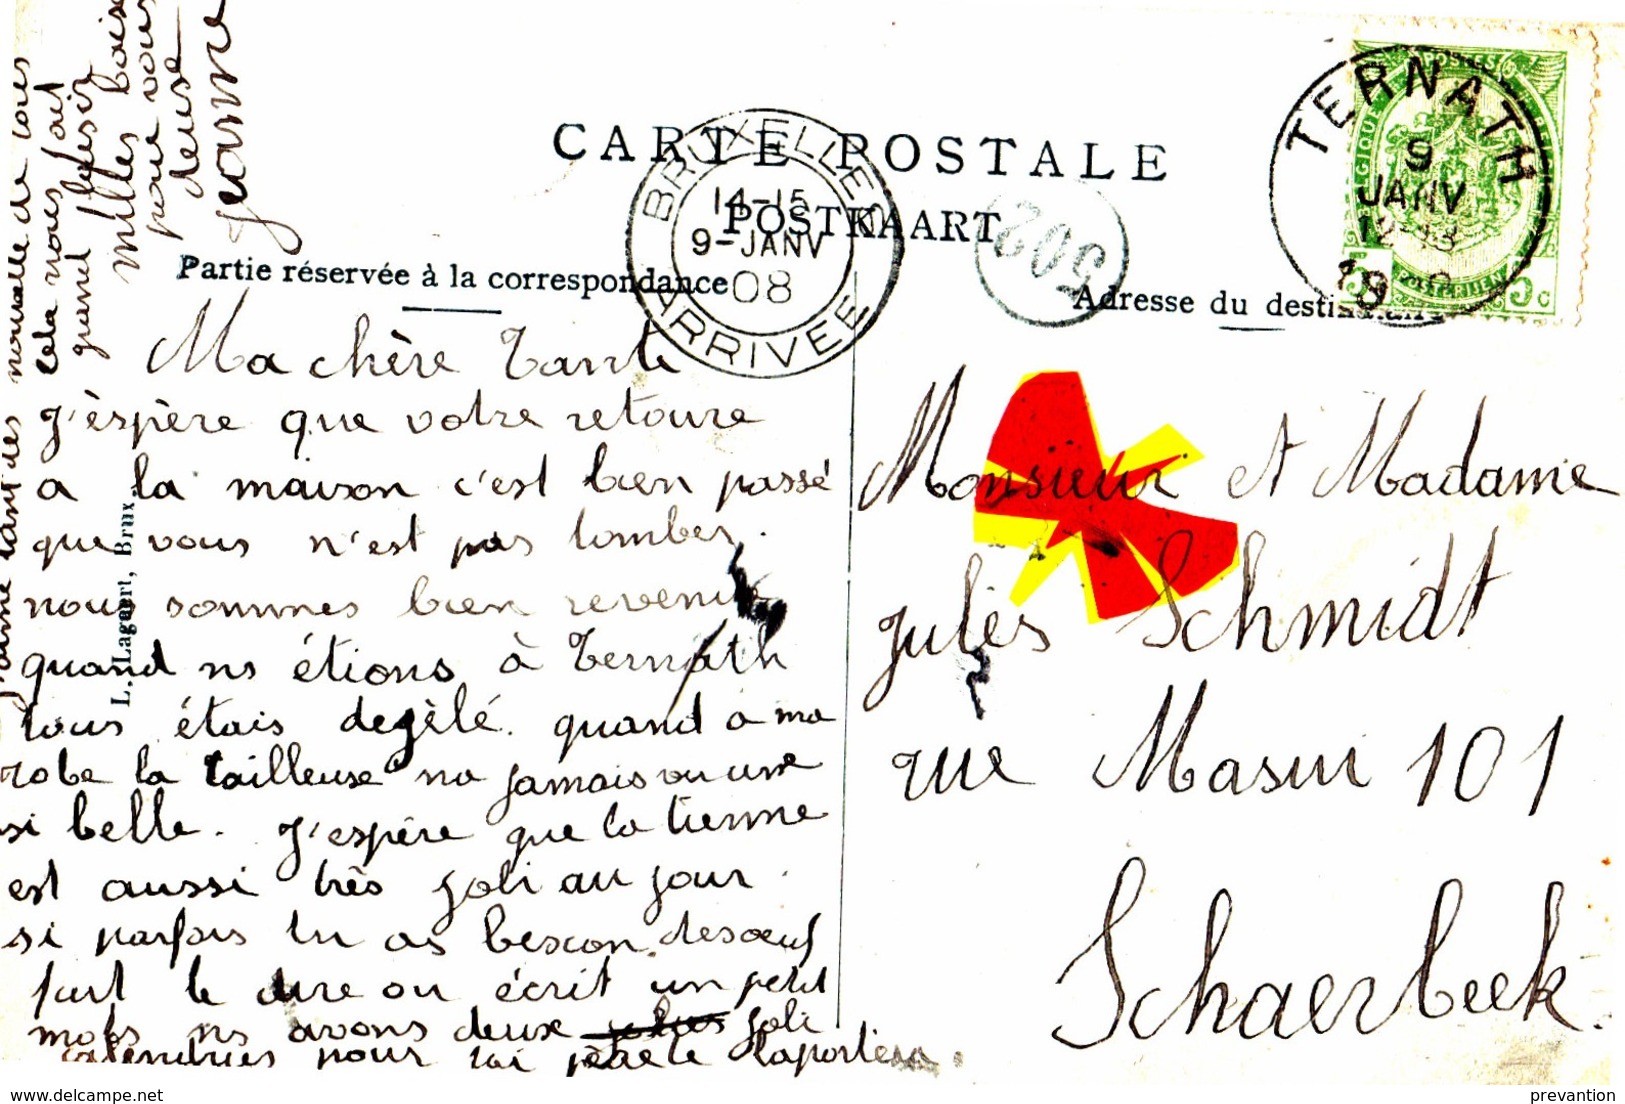 CARTE POSTALE
POSTKAART
Partie réservée à la correspondance
Adresse du destinataire
BRUXELLES
14-15
9-JANV
08
ARRIVÉE
502
TERNATH
9
JANV
12-13
08
POSTES
BELGIQUE
5 5c
Ma chère Tante
J'èspère que votre retoure
a la maison c'est bien passé
que vous n'est pas tomber.
nous sommes bien revenir
quand ns étions à Ternath
tous étais degèlé. quand à ma
robe la tailleuse na jamais vu une
si belle. J'espère que la tienne
est aussi très joli au jour.
si parfois tu as bescon desoeuf
fait le dire ou écrit un petit
mots ns avons deux joli
calendries pour toi père te laportera.
Jeanne tant des nouvelle de vous
cela nous fait
grand plaisir
milles baise
pour vous
deuse
Jeanne
L. Lagaert, Brux.
Monsieur et Madame
Jules Schmidt
rue Masui 101
Schaerbeek.
delcampe.net
prevantion